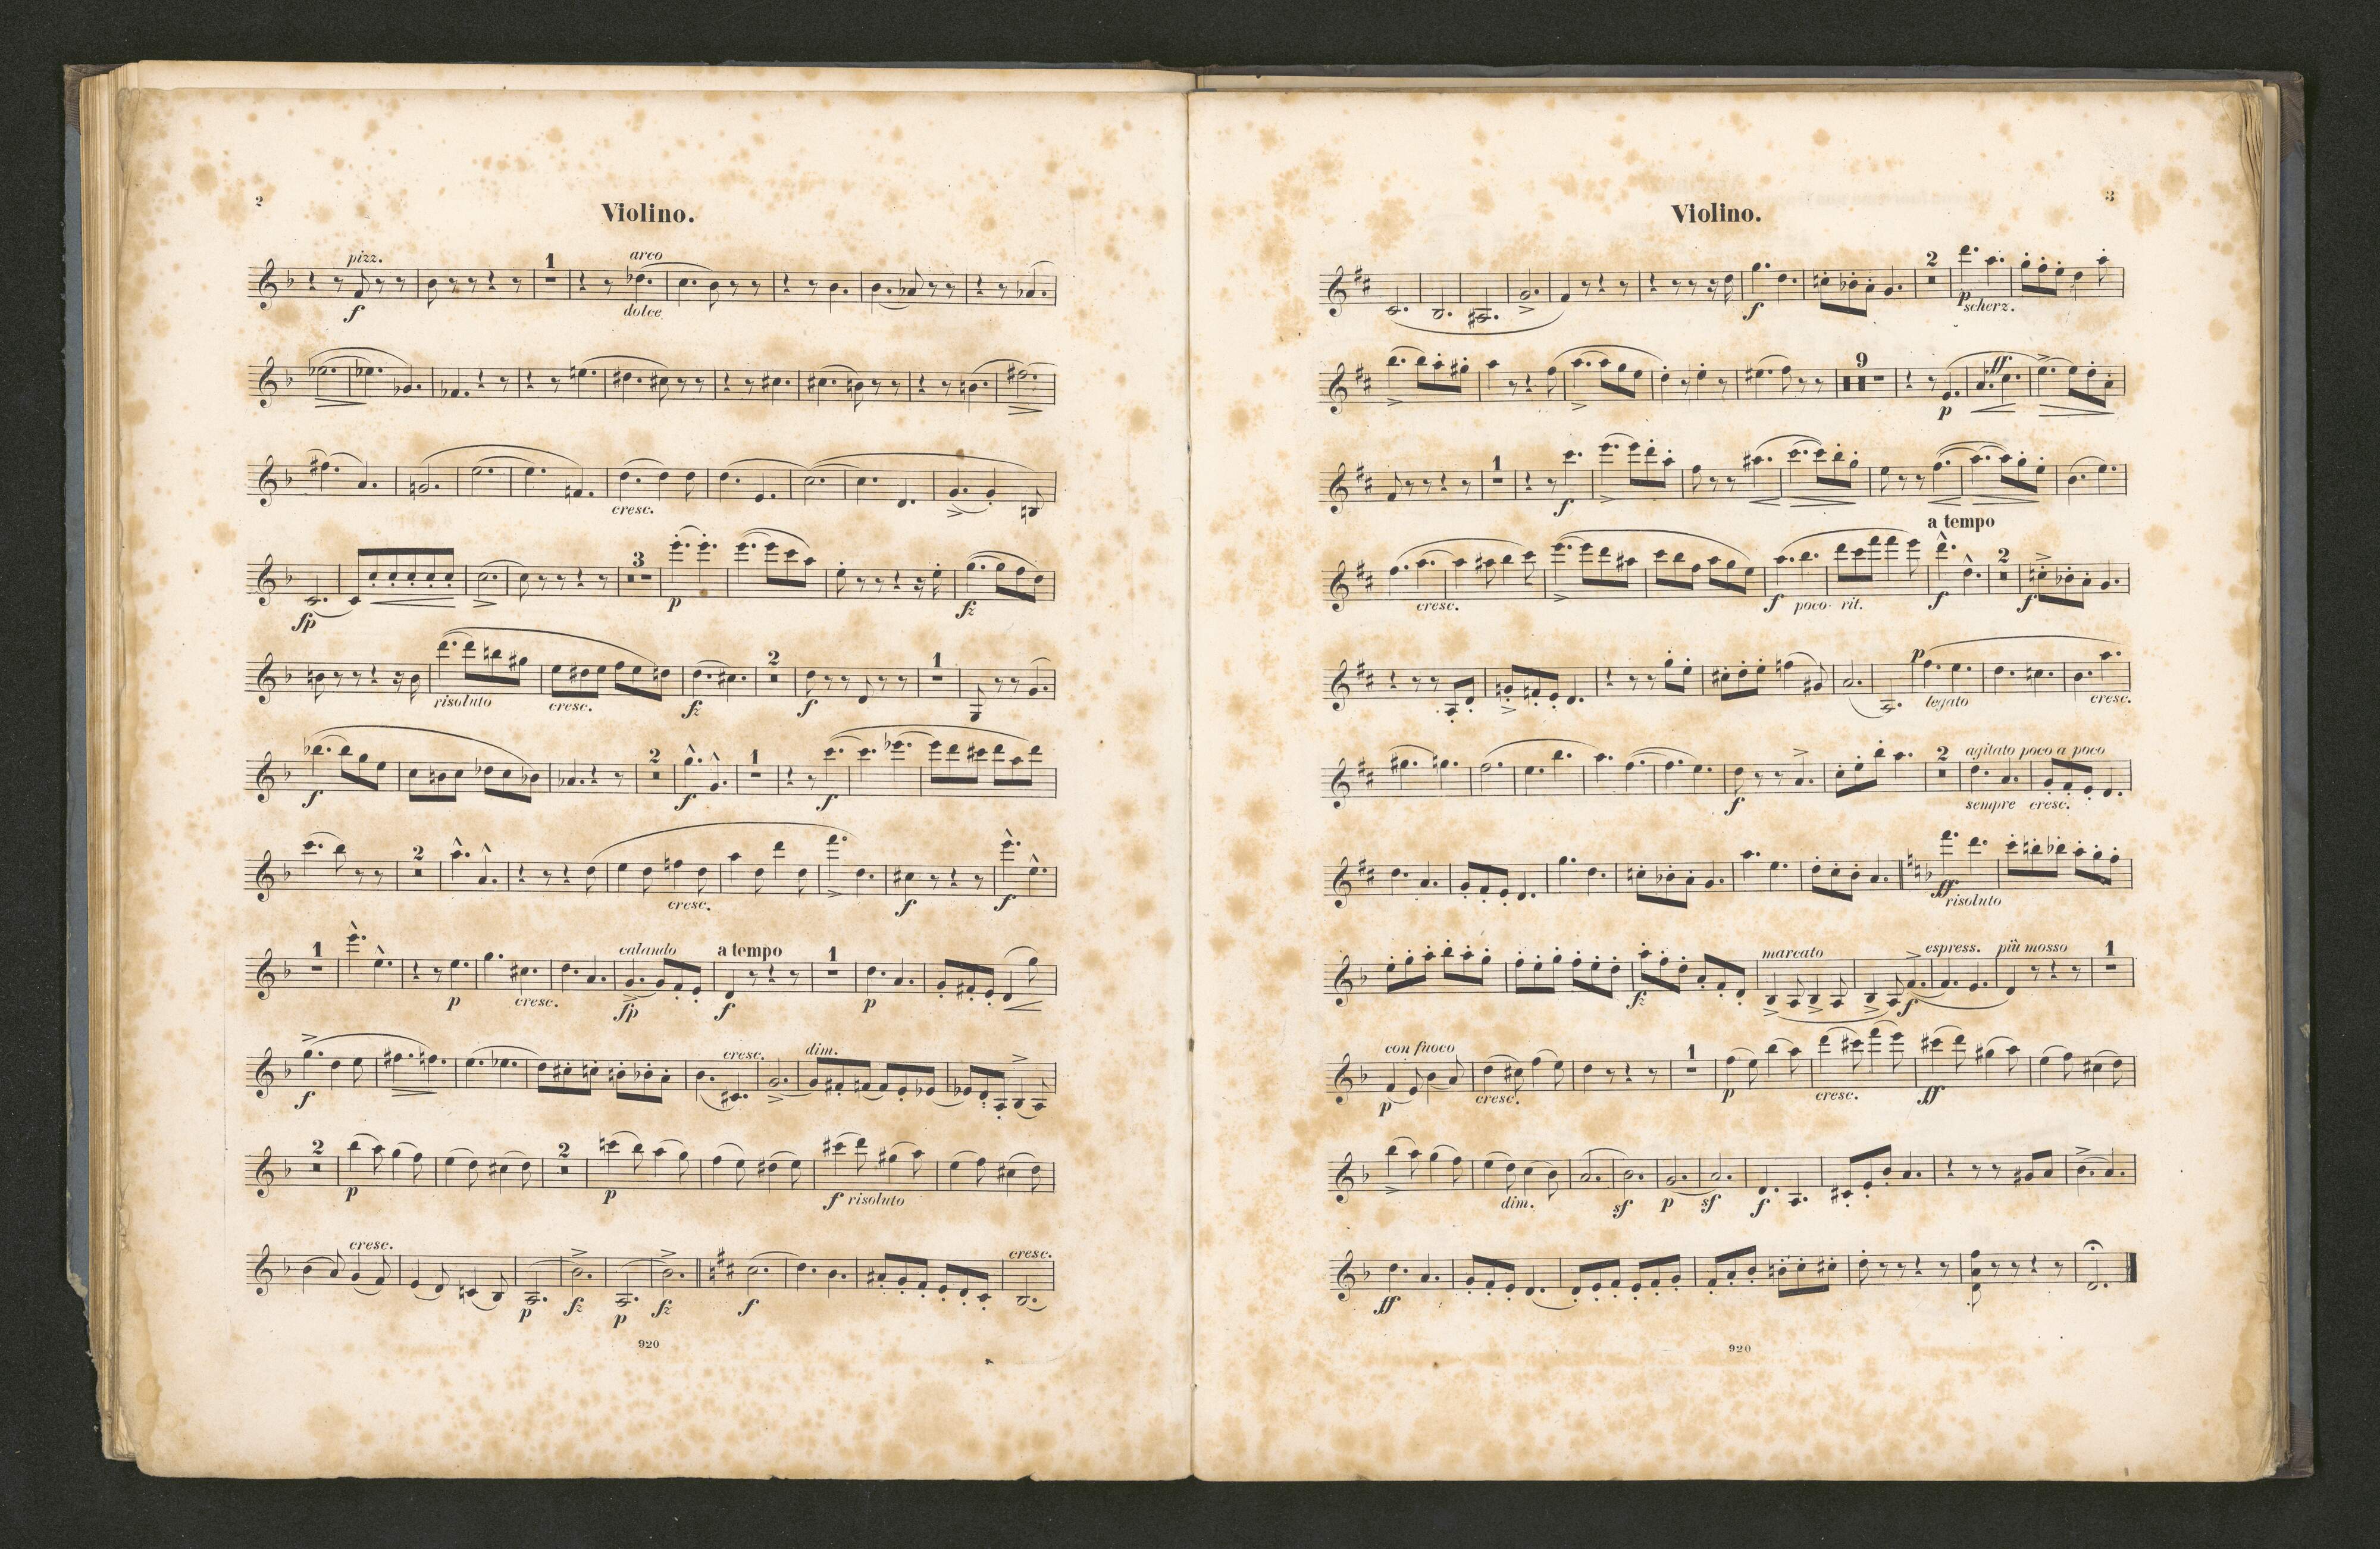 2
Violino.
pizz. 1 arco
f dolce
cresc.
3
fp p fz
2 1
risoluto cresc. fz f
2 1
f f f
2
cresc. f f
1 calando a tempo 1
p cresc. fp f p
cresc. dim.
f
2 2
p p f risoluto
cresc. cresc.
p fz p fz f
920
3
Violino.
2
f p scherz.
9 ff
p
1
f
a tempo
2
cresc. f poco rit. f f
p
legato cresc.
2 agitato poco a poco
f sempre cresc.
ff risoluto
marcato espress. più mosso 1
fz f
con fuoco 1
p cresc. p cresc. ff
dim. sf p sf f
ff
920